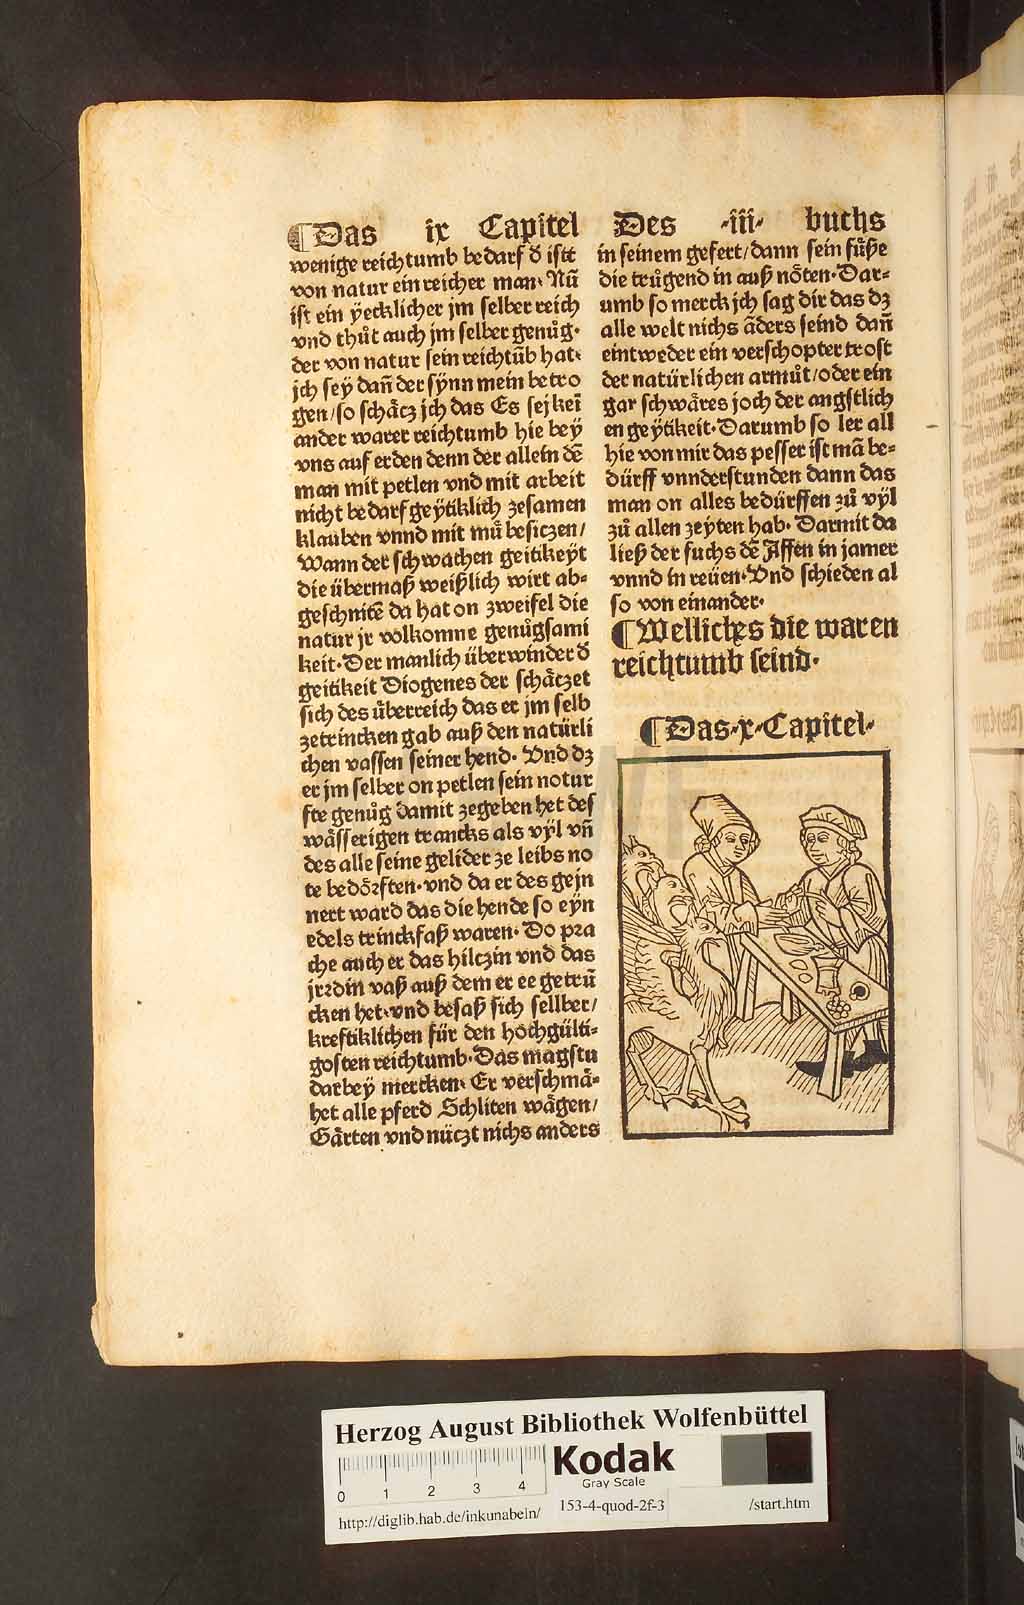 ¶Das ix Capitel Des ·iii· buchs
wenige reichtumb bedarf d̕ istt
von natur ein reicher man· Nū
ist ein ÿecklicher jm selber reich
vnd thůt auch jm selber genůg·
der von natur sein reichtūb hat·
jch seÿ dañ der sÿnn mein betro
gen/so schäcz jch das Es sej keī
ander warer reichtumb hie beÿ
vns auf erden denn der allein dē
man mit petlen vnd mit arbeit
nicht bedarf geÿtiklich zesamen
klauben vnnd mit mů besiczen/
Wann der schwachen geitikeÿt
die übermaß weißlich wirt ab⸗
geschnitē da hat on zweifel die
natur jr volkomne genůgsami
keit· Der manlich überwinder d̕
geitikeit Diogenes der schäczet
sich des überreich das er jm selb
zetrincken gab auß den natürli
chen vassen seiner hend· Vnd dz
er jm selber on petlen sein notur
fte genůg damit zegeben het des
wässerigen trancks als vÿl vñ
des alle seine gelider ze leibs no
te bedörften·vnd da er des gejn
nert ward das die hende so eÿn
edels trinckfaß waren· Do pra
che auch er das hilczin vnd das
jrꝛdin vaß auß dem er ee getrū
cken het·vnd besaß sich sellber/
kreftiklichen für den hochgülti⸗
gosten reichtumb· Das magstu
darbeÿ mercken· Er verschmä⸗
het alle pferd Schliten wägen/
Gärten vnd nüczt nichs anders
in seinem gefert/dann sein füße
die trůgend in auß nöten· Dar⸗
umb so merck jch sag dir das dz
alle welt nichs äders seind dañ
eintweder ein verschopter trost
der natürlichen armůt/oder ein
gar schwäres joch der angstlich
en geÿtikeit· Darumb so ler all
hie von mir das pesser ist mā be⸗
dürff vnnderstunden dann das
man on alles bedürffen zů vÿl
zů allen zeÿten hab· Darmit da
ließ der fuchs dē Affen in jamer
vnnd in reüen· Vnd schieden al
so von einander·
¶Welliches die waren
reichtumb seind·
¶Das·x·Capitel·
Herzog August Bibliothek Wolfenbüttel
Kodak
Gray Scale
0 1 2 3 4
http://diglib.hab.de/inkunabeln/ 153-4-quod-2f-3 /start.htm